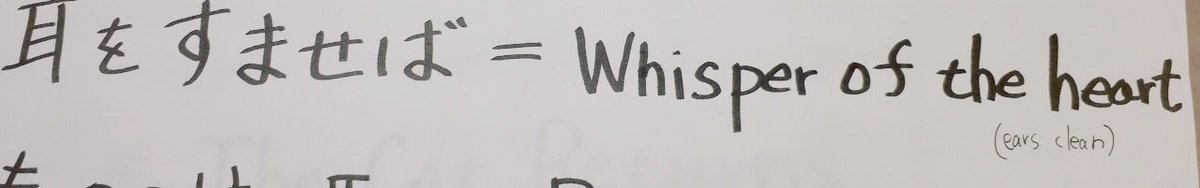 耳をすませば = Whisper of the heart
(ears clean)